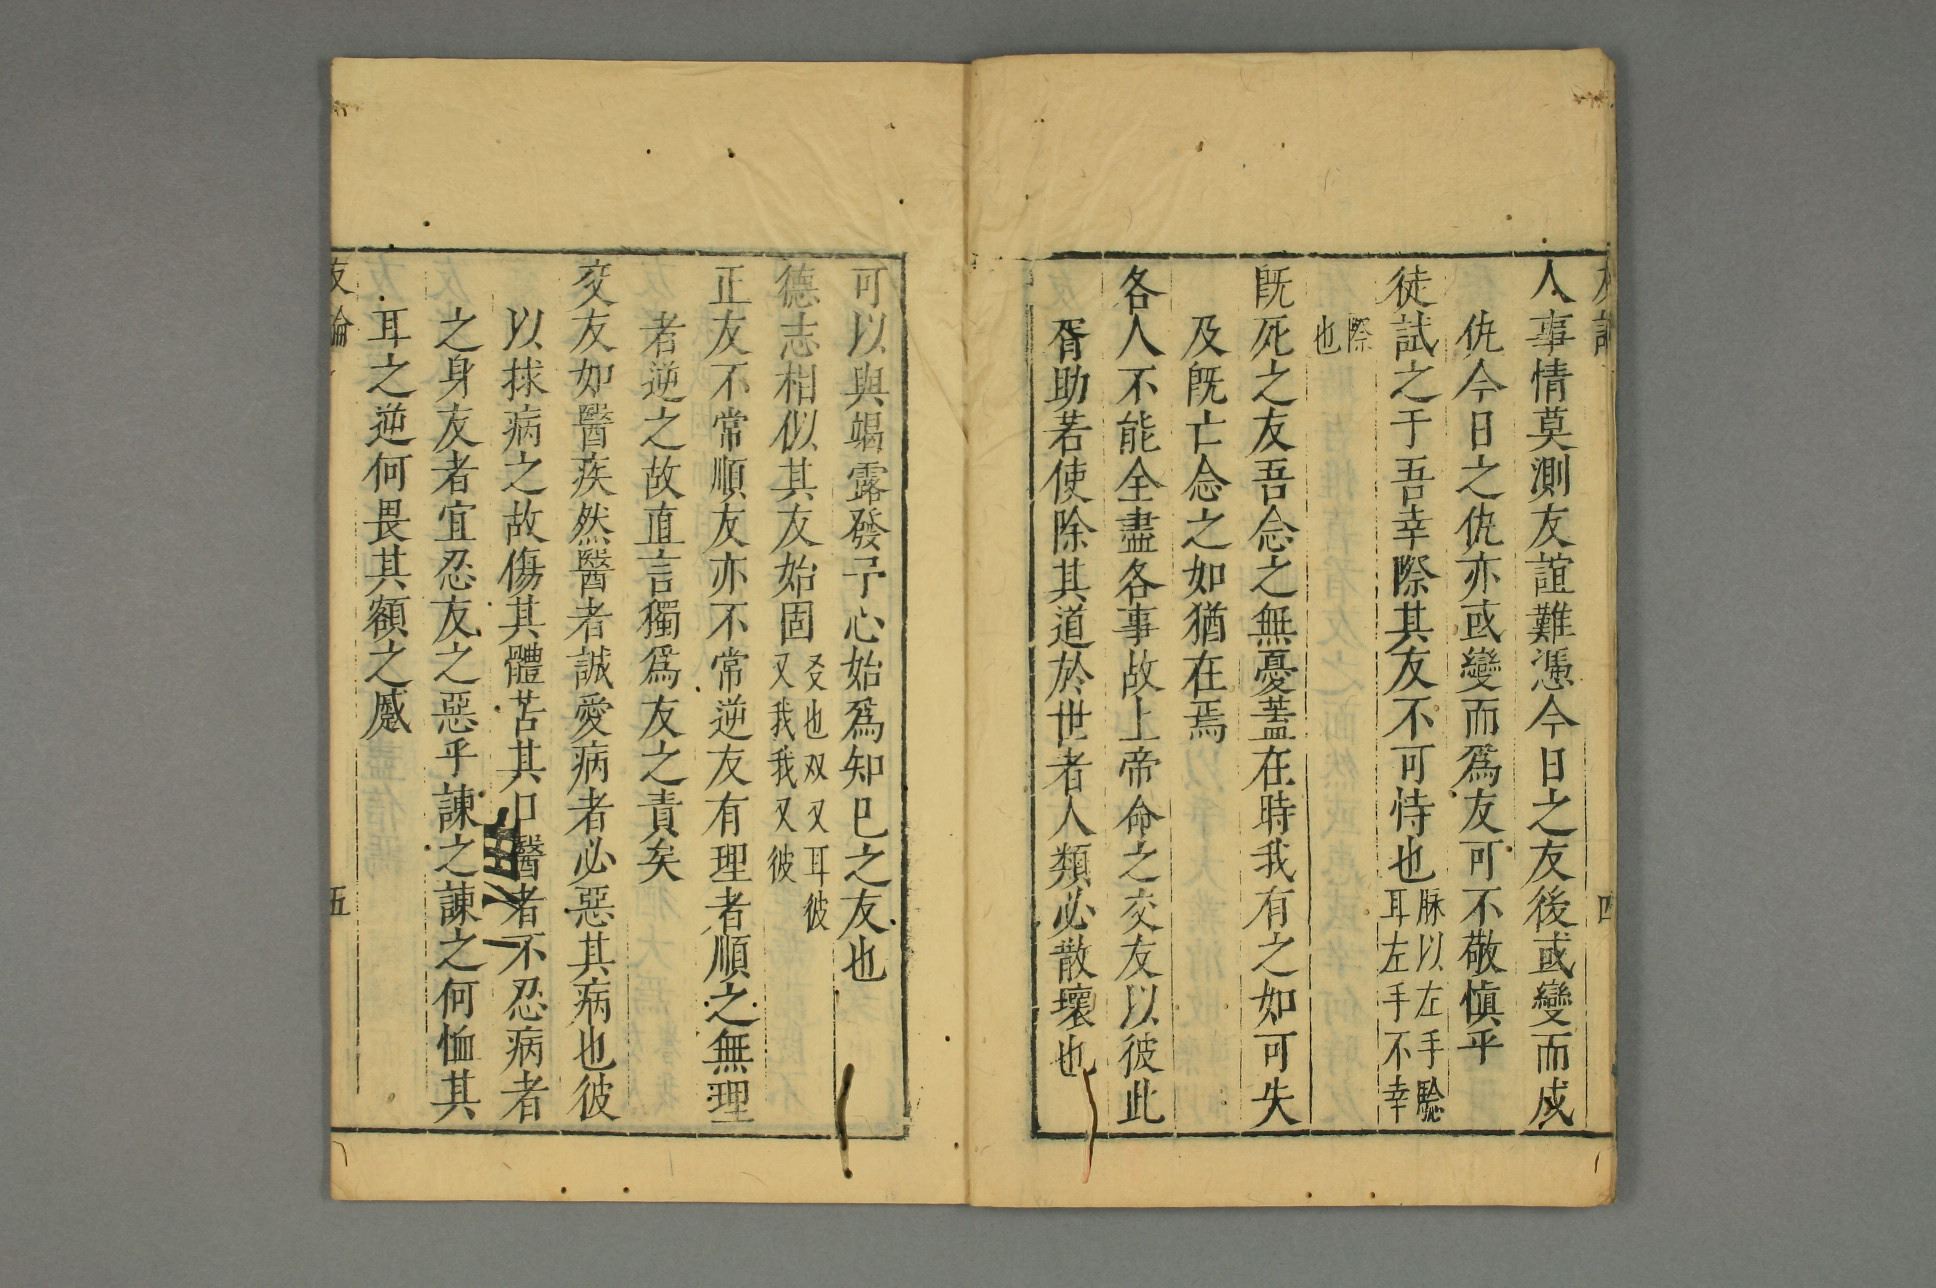 友論
四
人事情莫測友誼難憑今日之友後或變而成
仇今日之仇亦或變而爲友可不敬愼乎
徒試之于吾幸際其友不可恃也脉以左手驗
耳左手不幸
際
也
旣死之友吾念之無憂葢在時我有之如可失
及旣亡念之如猶在焉
各人不能全盡各事故上帝命之交友以彼此
胥助若使除其道於世者人類必散壞也
可以與竭露發予心始爲知巳之友也
德志相似其友始固㸚也双又耳彼
又我我又彼
正友不常順友亦不常逆友有理者順之無理
者逆之故直言獨爲友之責矣
交友如醫疾然醫者誠愛病者必惡其病也彼
以捄病之故傷其體苦其口醫者不忍病者
之身友者宜忍友之惡乎諫之諫之何恤其
耳之逆何畏其額之蹙
友論
五